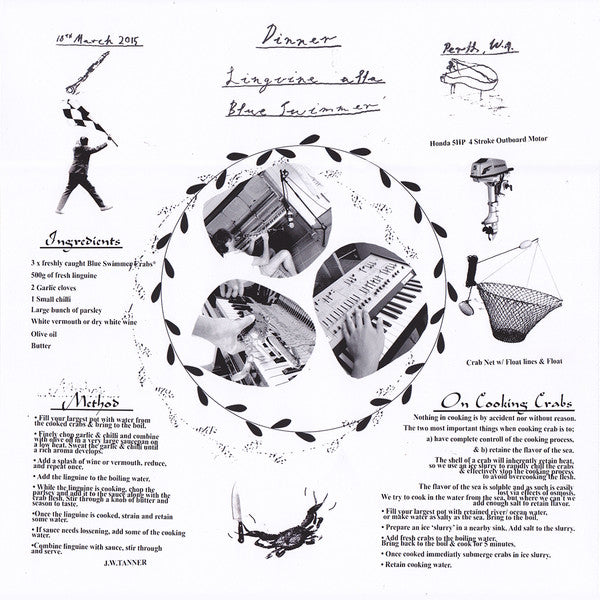 18TH March 2015
Dinner
Perth, W.A.
Linguine alla
Blue Swimmer
Honda 5HP 4 Stroke Outboard Motor
Ingredients
3 x freshly caught Blue Swimmer Crabs*
500g of fresh linguine
2 Garlic cloves
1 Small chilli
Large bunch of parsley
White vermouth or dry white wine
Olive oil
Butter
Crab Net w/ Float lines & Float
Method
• Fill your largest pot with water from
the cooked crabs & bring to the boil.
• Finely chop garlic & chilli and combine
with olive oil in a very large saucepan on
a low heat. Sweat the garlic & chilli until
a rich aroma develops.
• Add a splash of wine or vermouth, reduce,
and repeat once.
• Add the linguine to the boiling water.
• While the linguine is cooking, chop the
parsley and add it to the sauce along with the
crab flesh. Stir through a knob of butter and
season to taste.
•Once the linguine is cooked, strain and retain
some water.
• If sauce needs lossening, add some of the cooking
water.
•Combine linguine with sauce, stir through
and serve.
J.W.TANNER
On Cooking Crabs
Nothing in cooking is by accident nor without reason.
The two most important things when cooking crab is to;
a) have complete controll of the cooking process,
& b) retaine the flavor of the sea.
The shell of a crab will inherently retain heat,
so we use an ice slurry to rapidly chill the crabs
& effectively stop the cooking process
to avoid overcooking the flesh.
The flavor of the sea is soluble and as such is easily
lost via effects of osmosis.
We try to cook in the water from the sea, but where we can't we
add enough salt to retain flavor.
• Fill your largest pot with retained river/ ocean water,
or make water as salty as the sea. Bring to the boil.
• Prepare an ice 'slurry' in a nearby sink. Add salt to the slurry.
• Add fresh crabs to the boiling water.
Bring back to the boil & cook for 5 minutes.
• Once cooked immediatly submerge crabs in ice slurry.
• Retain cooking water.